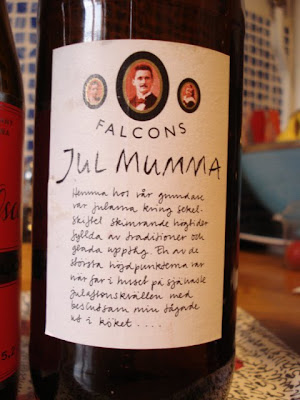 FALCONS
JUL MUMMA
Hemma hos vår grundare
var jularna kring sekel-
skiftet skimrande högtider
fyllda av traditioner och
glada upptåg. En av de
största höjdpunkterna var
när far i huset på självaste
julaftonskvällen med
beslutsam min tågade
ut i köket ....
5,2